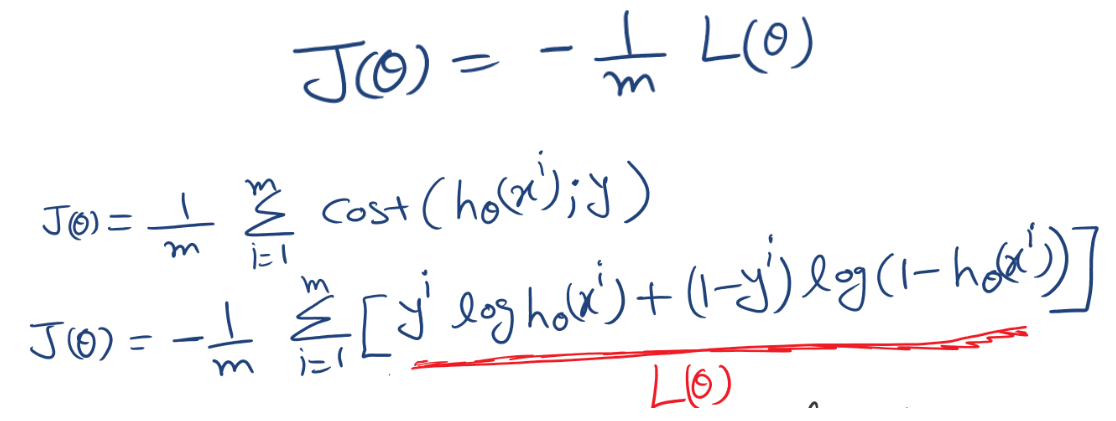 J(θ) = - 1/m L(θ)
J(θ) = 1/m Σ_{i=1}^{m} cost(h_θ(x^i); y)
J(θ) = - 1/m Σ_{i=1}^{m} [y^i log h_θ(x^i) + (1-y^i) log(1-h_θ(x^i))]
L(θ)